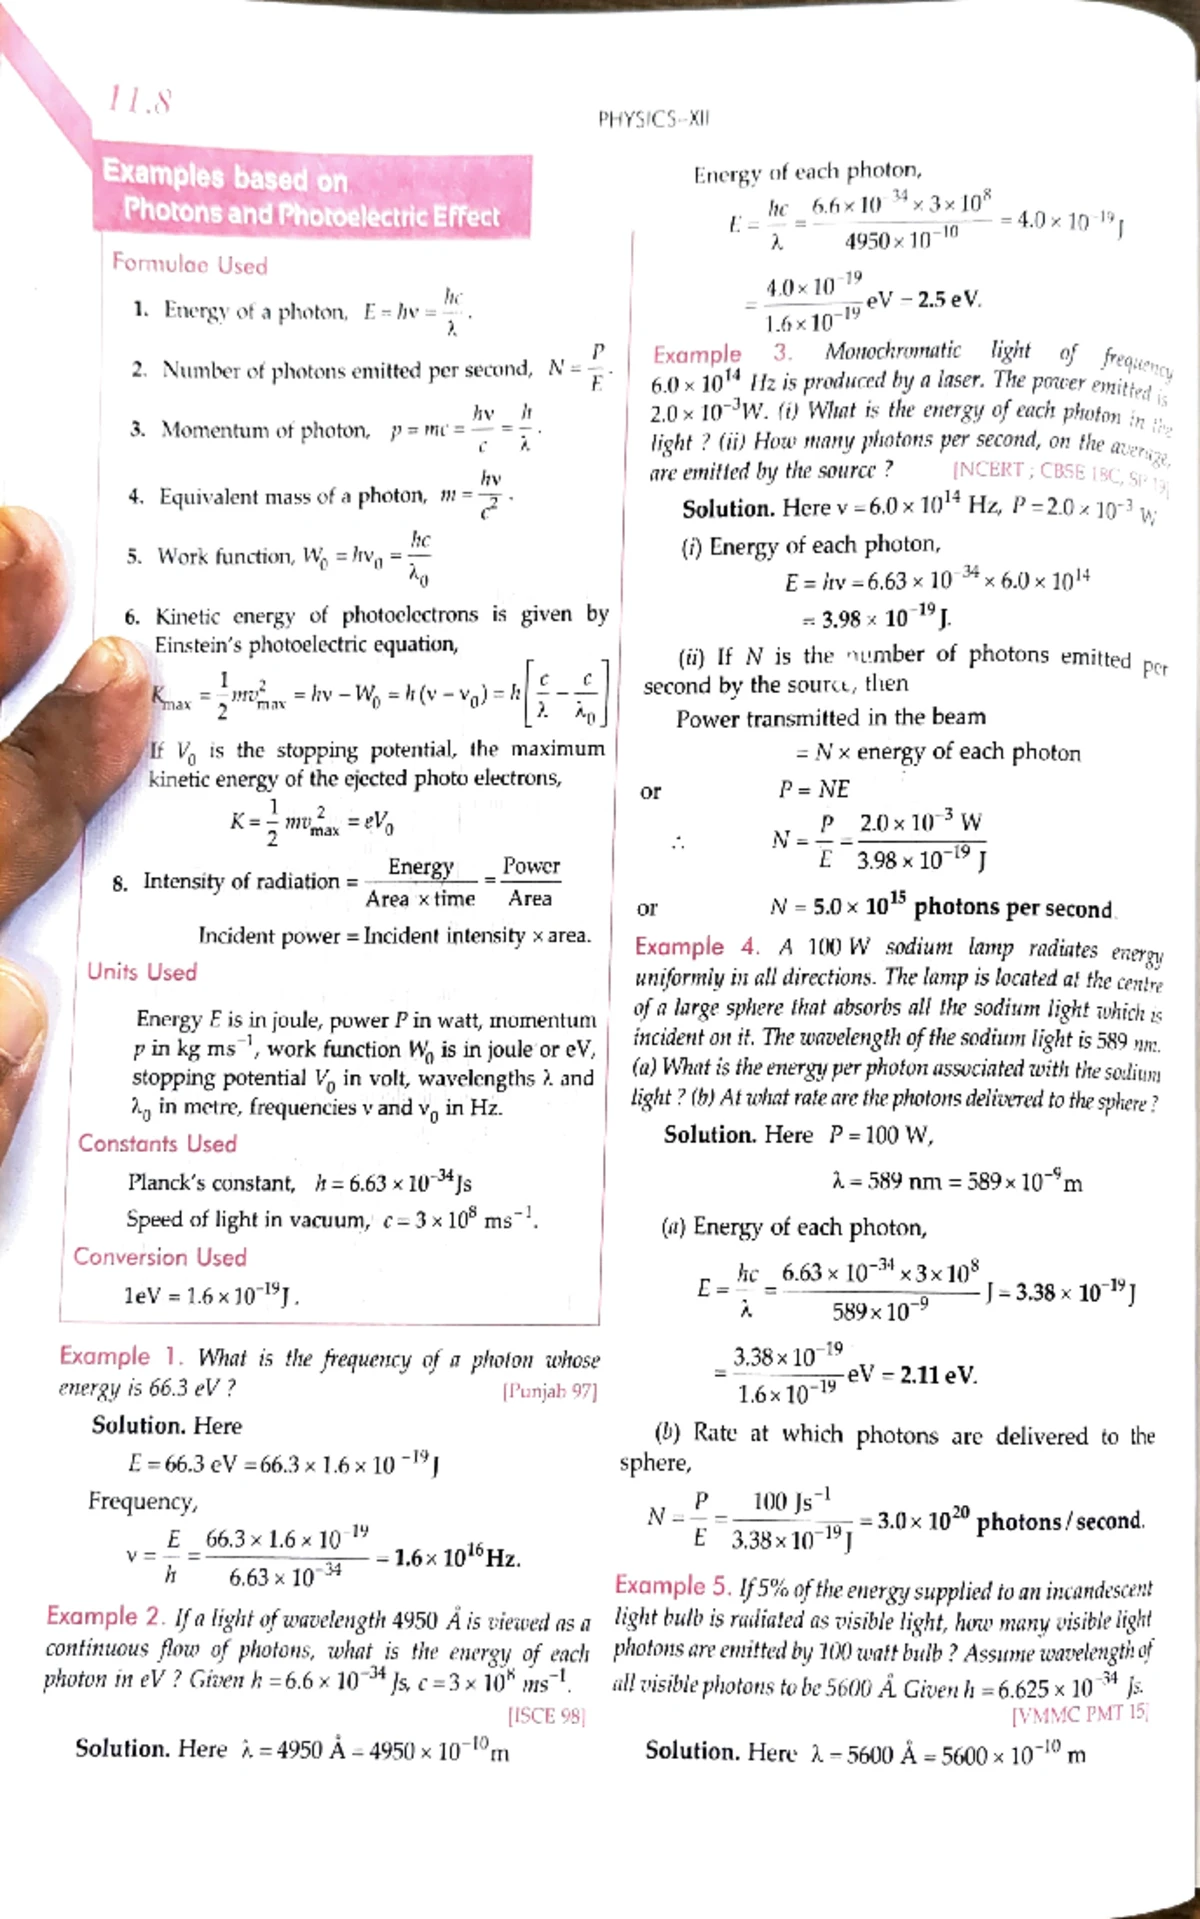 11.8
PHYSICS–XII
Examples based on
Photons and Photoelectric Effect
Formulae Used
1. Energy of a photon, E = hν = hc/λ .
2. Number of photons emitted per second, N = P/E .
3. Momentum of photon, p = mc = hν/c = h/λ .
4. Equivalent mass of a photon, m = hν/c² .
5. Work function, W₀ = hν₀ = hc/λ₀
6. Kinetic energy of photoelectrons is given by
Einstein's photoelectric equation,
K_max = 1/2 mv²_max = hν – W₀ = h(ν – ν₀) = h[c/λ – c/λ₀]
If V₀ is the stopping potential, the maximum
kinetic energy of the ejected photo electrons,
K = 1/2 mv²_max = eV₀
8. Intensity of radiation = Energy/(Area × time) = Power/Area
Incident power = Incident intensity × area.
Units Used
Energy E is in joule, power P in watt, momentum
p in kg ms⁻¹, work function W₀ is in joule or eV,
stopping potential V₀ in volt, wavelengths λ and
λ₀ in metre, frequencies ν and ν₀ in Hz.
Constants Used
Planck's constant, h = 6.63 × 10⁻³⁴ Js
Speed of light in vacuum, c = 3 × 10⁸ ms⁻¹.
Conversion Used
1eV = 1.6 × 10⁻¹⁹ J.
Example 1. What is the frequency of a photon whose
energy is 66.3 eV ? [Punjab 97]
Solution. Here
E = 66.3 eV = 66.3 × 1.6 × 10⁻¹⁹ J
Frequency,
ν = E/h = (66.3 × 1.6 × 10⁻¹⁹)/(6.63 × 10⁻³⁴) = 1.6 × 10¹⁶ Hz.
Example 2. If a light of wavelength 4950 Å is viewed as a
continuous flow of photons, what is the energy of each
photon in eV ? Given h = 6.6 × 10⁻³⁴ Js, c = 3 × 10⁸ ms⁻¹.
[ISCE 98]
Solution. Here λ = 4950 Å = 4950 × 10⁻¹⁰ m
Energy of each photon,
E = hc/λ = (6.6 × 10⁻³⁴ × 3 × 10⁸)/(4950 × 10⁻¹⁰) = 4.0 × 10⁻¹⁹ J
= (4.0 × 10⁻¹⁹)/(1.6 × 10⁻¹⁹) eV = 2.5 eV.
Example 3. Monochromatic light of frequency
6.0 × 10¹⁴ Hz is produced by a laser. The power emitted is
2.0 × 10⁻³ W. (i) What is the energy of each photon in the
light ? (ii) How many photons per second, on the average,
are emitted by the source ? [NCERT ; CBSE 18C, SP 19]
Solution. Here ν = 6.0 × 10¹⁴ Hz, P = 2.0 × 10⁻³ W
(i) Energy of each photon,
E = hν = 6.63 × 10⁻³⁴ × 6.0 × 10¹⁴
= 3.98 × 10⁻¹⁹ J.
(ii) If N is the number of photons emitted per
second by the source, then
Power transmitted in the beam
= N × energy of each photon
or P = NE
∴ N = P/E = (2.0 × 10⁻³ W)/(3.98 × 10⁻¹⁹ J)
or N = 5.0 × 10¹⁵ photons per second.
Example 4. A 100 W sodium lamp radiates energy
uniformly in all directions. The lamp is located at the centre
of a large sphere that absorbs all the sodium light which is
incident on it. The wavelength of the sodium light is 589 nm.
(a) What is the energy per photon associated with the sodium
light ? (b) At what rate are the photons delivered to the sphere ?
Solution. Here P = 100 W,
λ = 589 nm = 589 × 10⁻⁹ m
(a) Energy of each photon,
E = hc/λ = (6.63 × 10⁻³⁴ × 3 × 10⁸)/(589 × 10⁻⁹) J = 3.38 × 10⁻¹⁹ J
= (3.38 × 10⁻¹⁹)/(1.6 × 10⁻¹⁹) eV = 2.11 eV.
(b) Rate at which photons are delivered to the
sphere,
N = P/E = (100 Js⁻¹)/(3.38 × 10⁻¹⁹ J) = 3.0 × 10²⁰ photons / second.
Example 5. If 5% of the energy supplied to an incandescent
light bulb is radiated as visible light, how many visible light
photons are emitted by 100 watt bulb ? Assume wavelength of
all visible photons to be 5600 Å. Given h = 6.625 × 10⁻³⁴ Js.
[VMMC PMT 15]
Solution. Here λ = 5600 Å = 5600 × 10⁻¹⁰ m